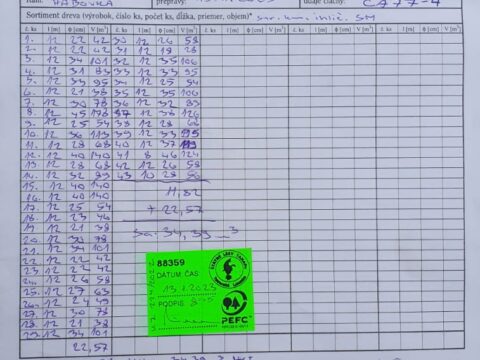 HABOVKA prepravy: údaje čiapky: CA77-4
Sortiment dreva (výrobok, číslo ks, počet ks, dĺžka, priemer, objem)* sur. kmi. ihlič. SM
č. ks l [m] ϕ [cm] V [m³] č. ks l [m] ϕ [cm] V [m³] č. ks l [m] ϕ [cm] V [m³] č. ks l [m] ϕ [cm] V [m³] č. ks l [m] ϕ [cm] V [m³]
1. 12 22 42 30 12 26 58
2. 12 22 42 31 12 19 28
3. 12 34 101 32 12 35 106
4. 12 31 83 33 12 33 95
5. 12 33 95 34 12 25 54
6. 12 21 38 35 12 35 106
7. 12 30 78 36 12 32 89
8. 12 45 178 37 12 38 126
9. 12 25 54 38 12 28 68
10. 12 36 113 39 12 33 95
11. 12 28 68 40 12 37 119
12. 12 40 140 41 8 46 124
13. 12 28 68 42 12 26 58
14. 12 32 89 43 10 28 56
15. 12 40 140
16. 12 40 140 11,82
17. 12 25 54 + 22,57
18. 12 23 46
19. 12 21 38 34,39
20. 12 30 78
21. 12 34 101
22. 12 22 42
23. 12 22 42
24. 12 26 58
25. 12 27 63
26. 12 24 49
27. 12 30 78
28. 12 21 38
29. 12 34 101
22,57
88359
DATUM ČAS
13.1.2023
PODPIS
PEFC